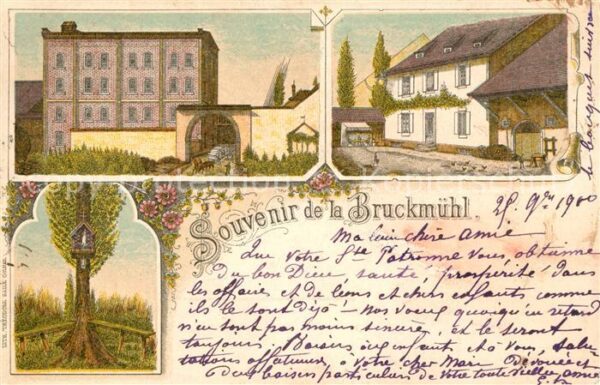 Souvenir de la Bruckmühl
25. 9bre 1900
Ma bien chère amie
Que votre Ste Patronne vous obtienne
du bon Dieu, santé, prospérité dans
les affaires et de bons et chers enfants comme
ils le sont déjà – Nos voeux quoiqu'en retard
n'en sont pas moins sincères et le seront
toujours. Baisers aux enfants et à vous, salu-
tations affectueuses à votre cher Mari Dévouée et
des baisers particuliers de votre toute vieille amie
le bouquet suivra